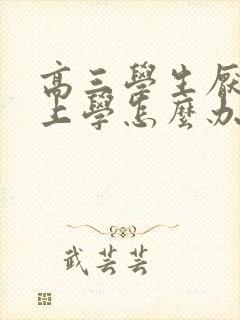 高三學生厭
上學怎麼办
武芸芸